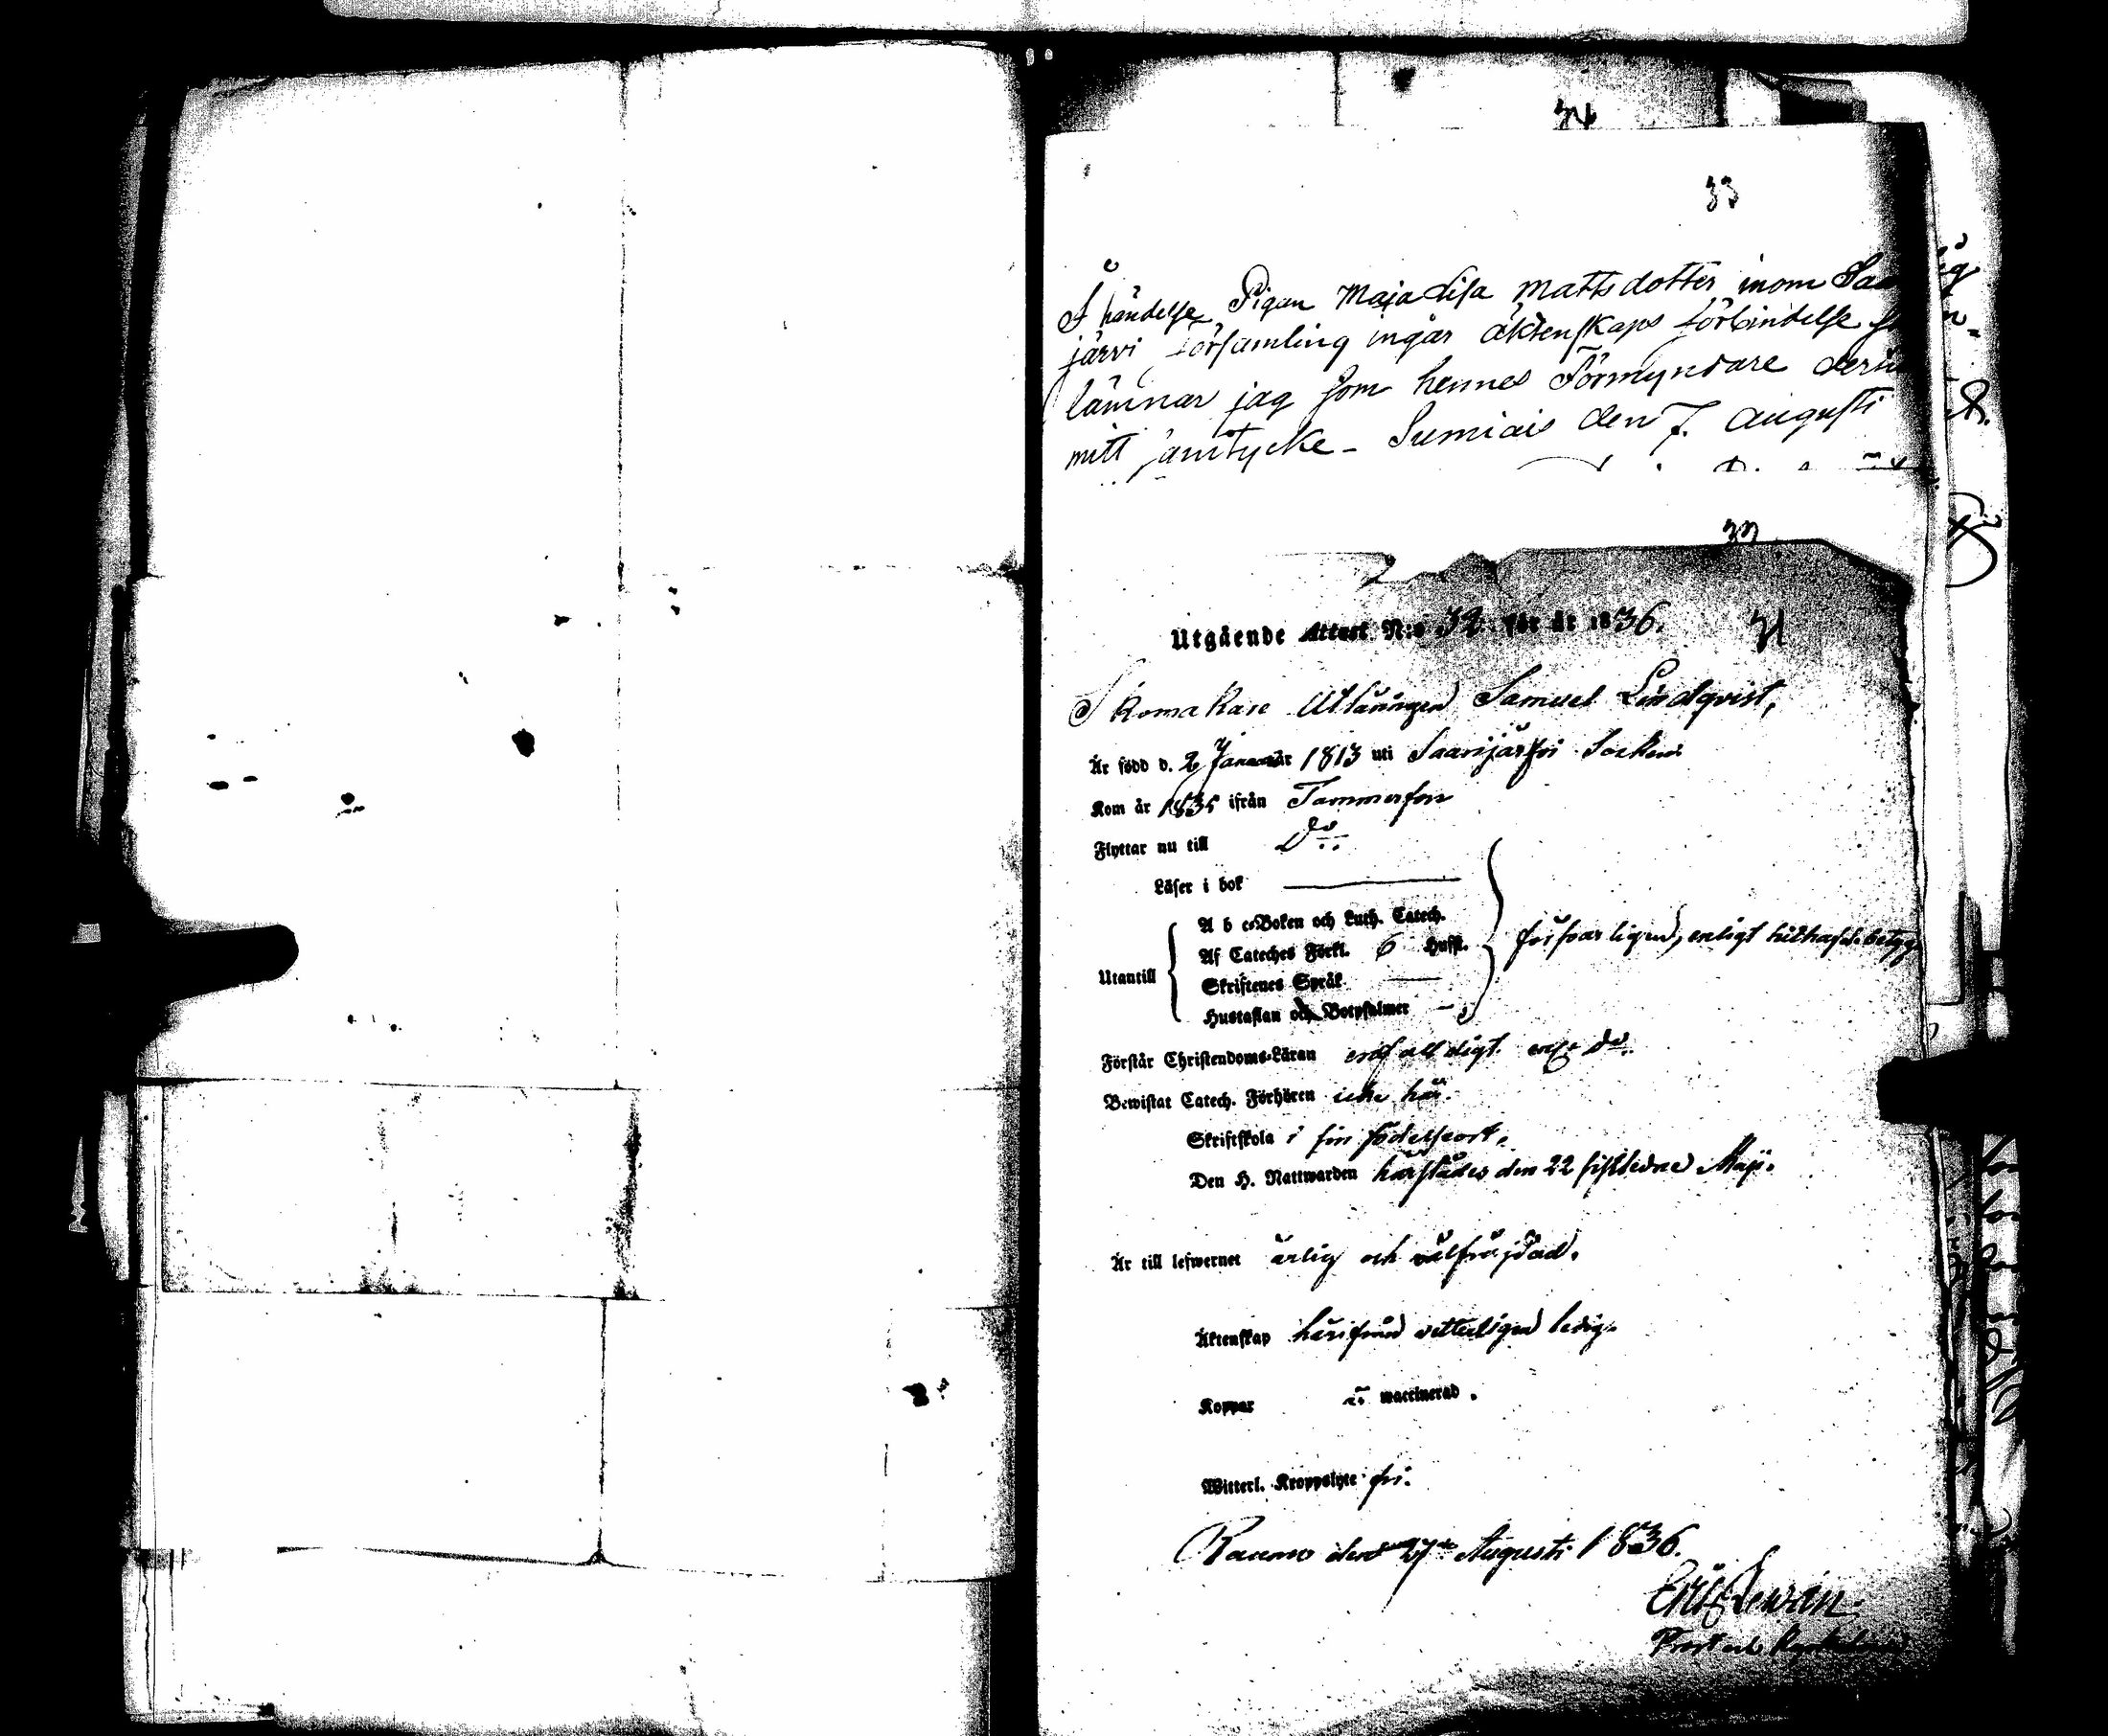 34
33
I händelse Pigan Maja Lisa Mattsdotter inom Saa
järvi Församling ingår äktenskaps förbindelse så
lämnar jag som hennes Förmyndare dertill
mitt samtycke - Sumiais den 7. Augusti
32
Utgående Attest N:o 32 för år 1836.
31
Skomakare Utlärlingen Samuel Lindqvist,
Är född d. 2 Januar 1813 uti Saarijärfvi Socken
Kom år 1835 ifrån Tammerfors
Flyttar nu till Do
Läser i bok
A b c-Boken och Luth. Catech.
Af Cateches Förkl. 6 Hufst.
försvarligen, enligt hithafd. betyg
Utantill
Skriftenes Språk
Hustaflan och Botpsalmer
Förstår Christendoms-Läran enfalldigt. enl. do.
Bewistat Catech. Förhören icke här.
Skriftskola i sin födelseort.
Den H. Nattwarden härstädes den 22 sistledne Maji.
Är till lefwernet ärlig och välfräjdad.
Äktenskap härifrån vetterligen ledig.
Koppor waccinerad.
Witterl. Kroppslyte fri.
Raumo den 27de Augusti 1836.
Eric Lewrén.
Prost och Kyrkoherde